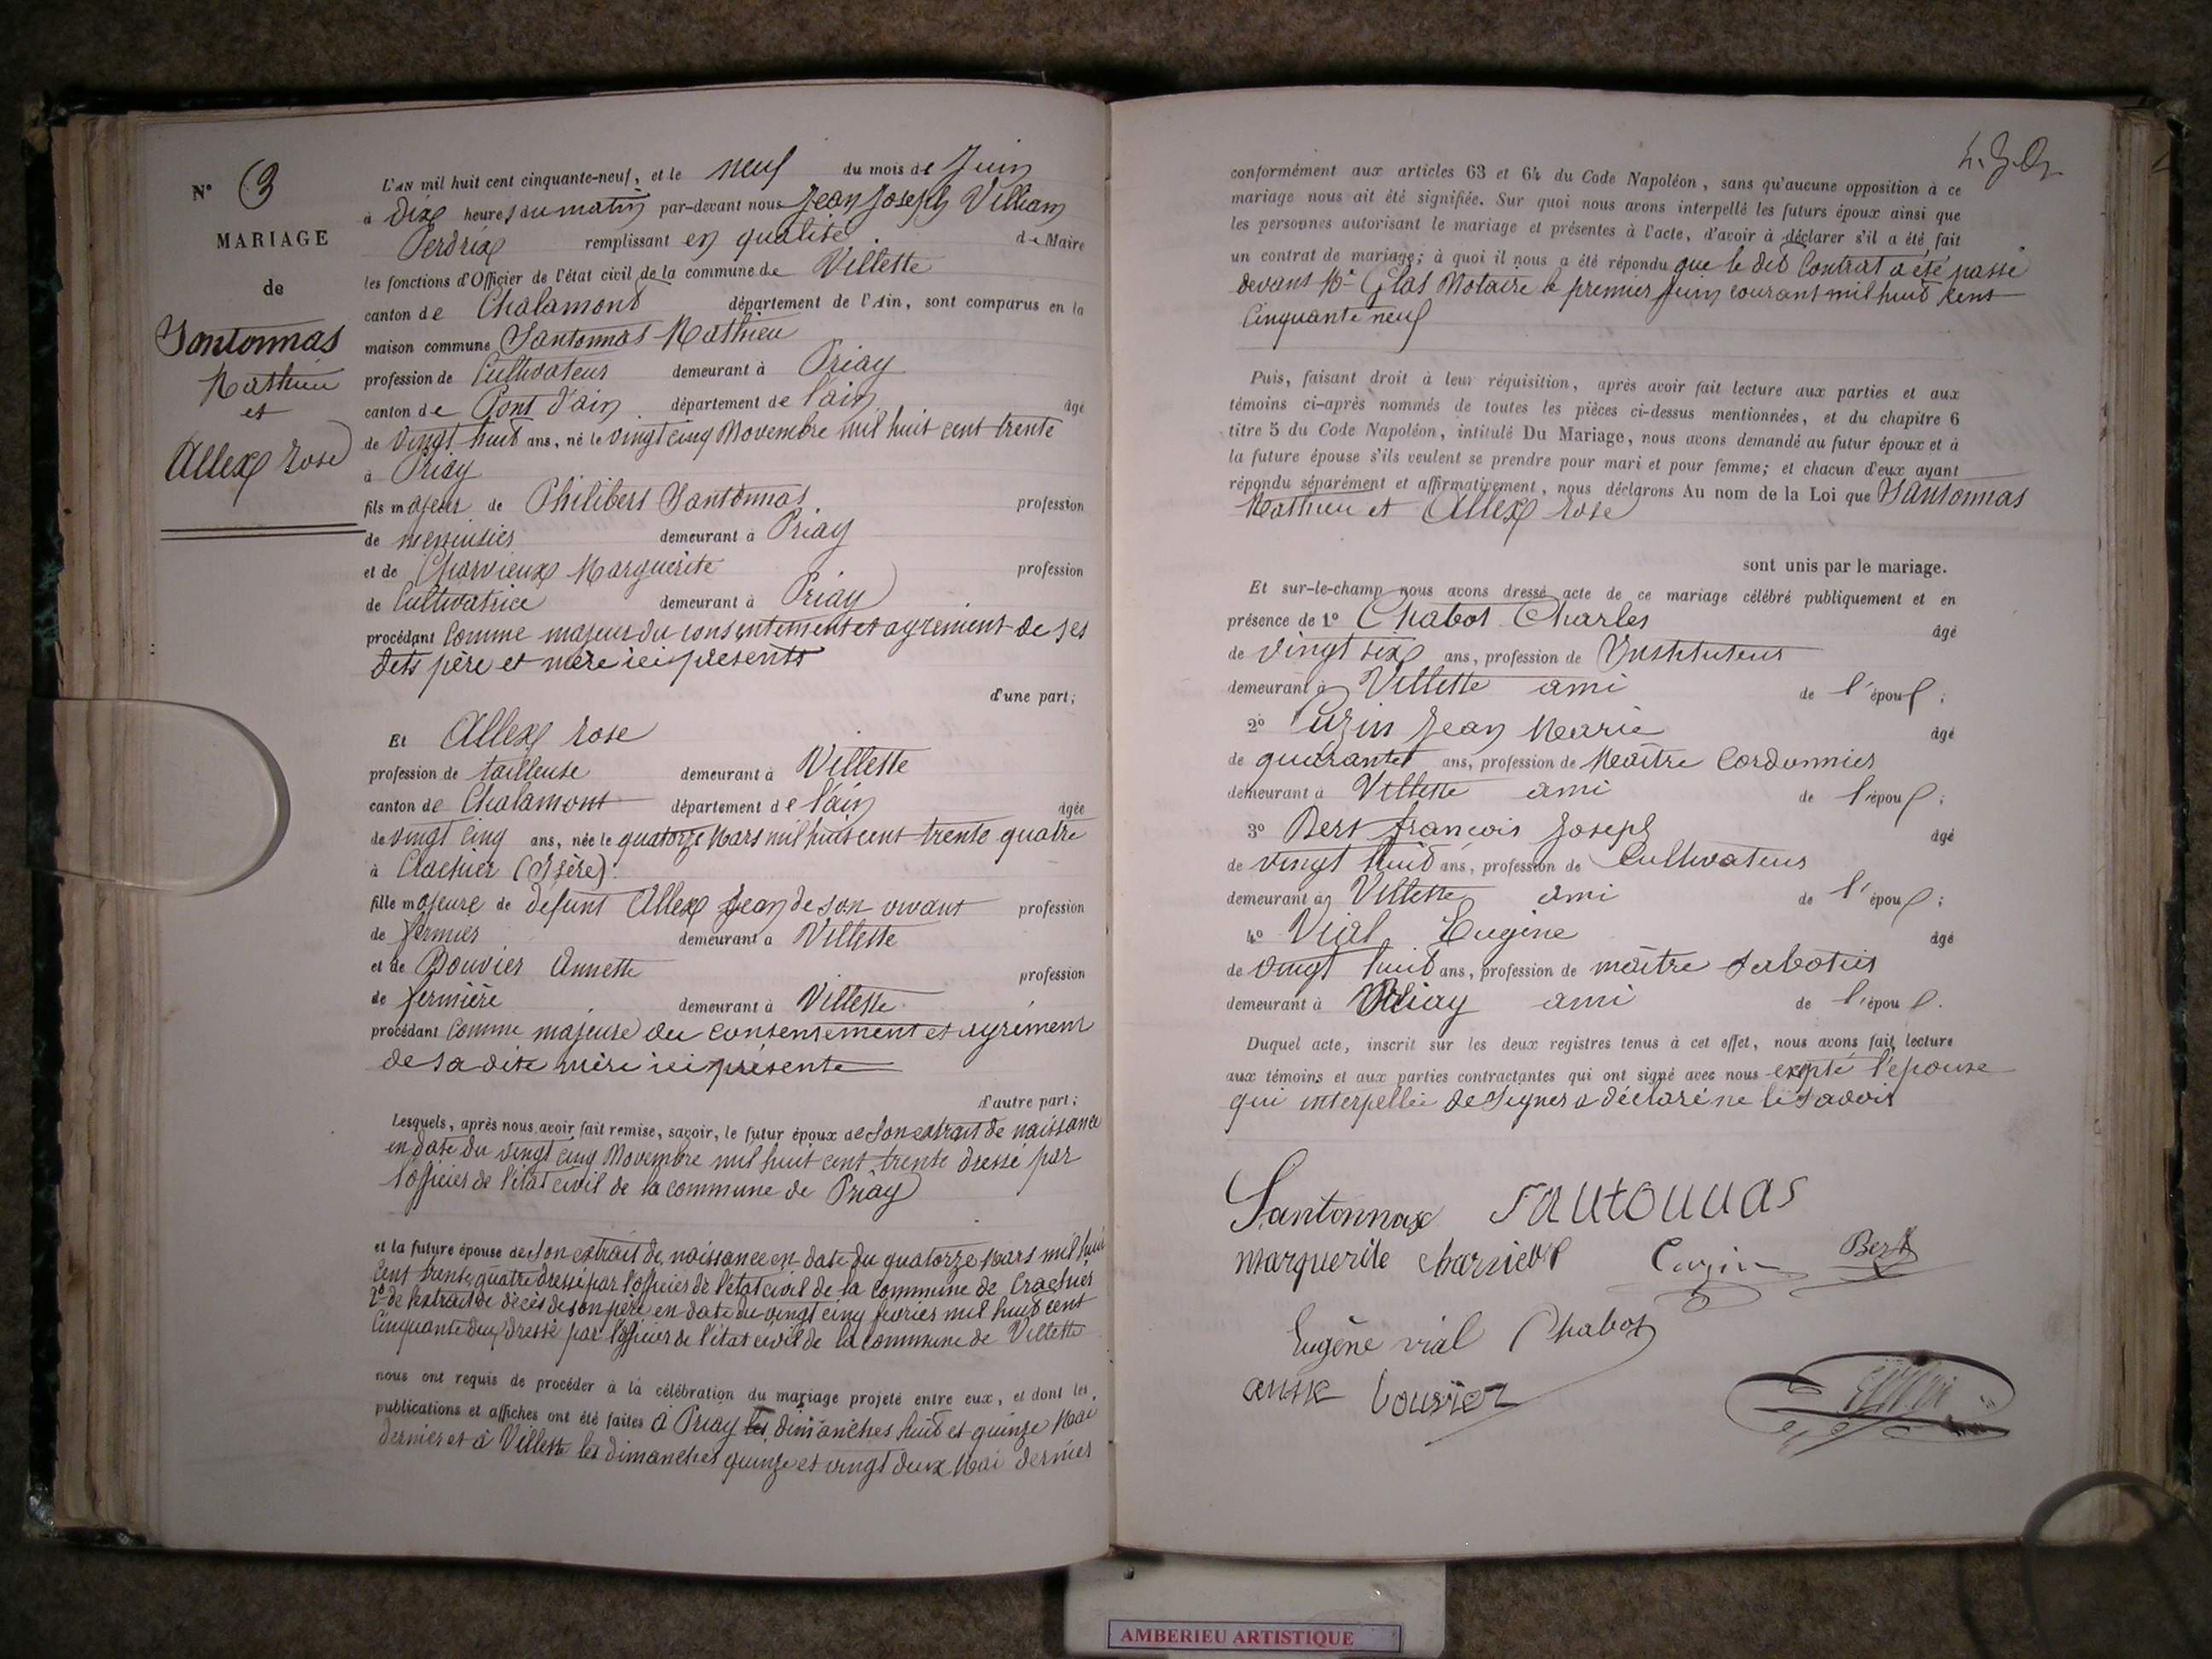 N° 3
MARIAGE
de
Santonnas
Mathieu
et
Allex rose
L'AN mil huit cent cinquante-neuf, et le neuf du mois de Juin
à Dix heures du matin par-devant nous Jean Joseph Villiam
Perdrix remplissant en qualité de Maire
les fonctions d'Officier de l'état civil de la commune de Villette
canton de Chalamont département de l'Ain, sont comparus en la
maison commune Santonnas Mathieu
profession de Cultivateur demeurant à Priay
canton de Pont d'ain département de l'ain âgé
de vingt huit ans, né le vingt cinq Novembre mil huit cent trente
à Priay
fils majeur de Philibert Santonnas profession
de menuisier demeurant à Priay
et de Charvieux Marguerite profession
de Cultivatrice demeurant à Priay
procédant Comme majeur du consentement et agrément de ses
dits père et mère ici présents
d'une part;
Et Allex rose
profession de tailleuse demeurant à Villette
canton de Chalamont département de l'ain âgée
de vingt cinq ans, née le quatorze Mars mil huit cent trente quatre
à Crachier (Isère)
fille majeure de défunt Allex Jean de son vivant profession
de fermier demeurant à Villette
et de Bouvier Annette profession
de fermière demeurant à Villette
procédant Comme majeure du consentement et agrément
de sa dite mère ici présente
d'autre part;
Lesquels, après nous avoir fait remise, savoir, le futur époux de son extrait de naissance
en date du vingt cinq Novembre mil huit cent trente dressé par
l'officier de l'état civil de la commune de Priay
et la future épouse de son extrait de naissance en date du quatorze Mars mil huit
cent trente quatre dressé par l'officier de l'état civil de la commune de Crachier
2° de l'extrait de décès de son père en date du vingt cinq février mil huit cent
cinquante deux dressé par l'officier de l'état civil de la commune de Villette
nous ont requis de procéder à la célébration du mariage projeté entre eux, et dont les
publications et affiches ont été faites à Priay les dimanches huit et quinze Mai
dernier et à Villette les dimanches quinze et vingt deux Mai dernier
conformément aux articles 63 et 64 du Code Napoléon, sans qu'aucune opposition à ce
mariage nous ait été signifiée. Sur quoi nous avons interpellé les futurs époux ainsi que
les personnes autorisant le mariage et présentes à l'acte, d'avoir à déclarer s'il a été fait
un contrat de mariage; à quoi il nous a été répondu que le dit Contrat a été passé
devant Me Glas Notaire le premier Juin courant mil huit cent
cinquante neuf
Puis, faisant droit à leur réquisition, après avoir fait lecture aux parties et aux
témoins ci-après nommés de toutes les pièces ci-dessus mentionnées, et du chapitre 6
titre 5 du Code Napoléon, intitulé Du Mariage, nous avons demandé au futur époux et à
la future épouse s'ils veulent se prendre pour mari et pour femme; et chacun d'eux ayant
répondu séparément et affirmativement, nous déclarons Au nom de la Loi que Santonnas
Mathieu et Allex rose
sont unis par le mariage.
Et sur-le-champ nous avons dressé acte de ce mariage célébré publiquement et en
présence de 1° Chabot Charles âgé
de vingt six ans, profession de Instituteur
demeurant à Villette ami de l'époux;
2° Cuzin Jean Marie âgé
de quarante ans, profession de Maître Cordonnier
demeurant à Villette ami de l'époux;
3° Bert françois Joseph âgé
de vingt huit ans, profession de Cultivateur
demeurant à Villette ami de l'époux;
4° Vial Eugène âgé
de vingt huit ans, profession de maître sabotier
demeurant à Priay ami de l'époux.
Duquel acte, inscrit sur les deux registres tenus à cet effet, nous avons fait lecture
aux témoins et aux parties contractantes qui ont signé avec nous excepté l'épouse
qui interpellée de signer a déclaré ne le savoir
Santonnax Santonnas
marguerite charvieux Cuzin Bert
Eugène vial Chabot
bouvier
AMBERIEU ARTISTIQUE